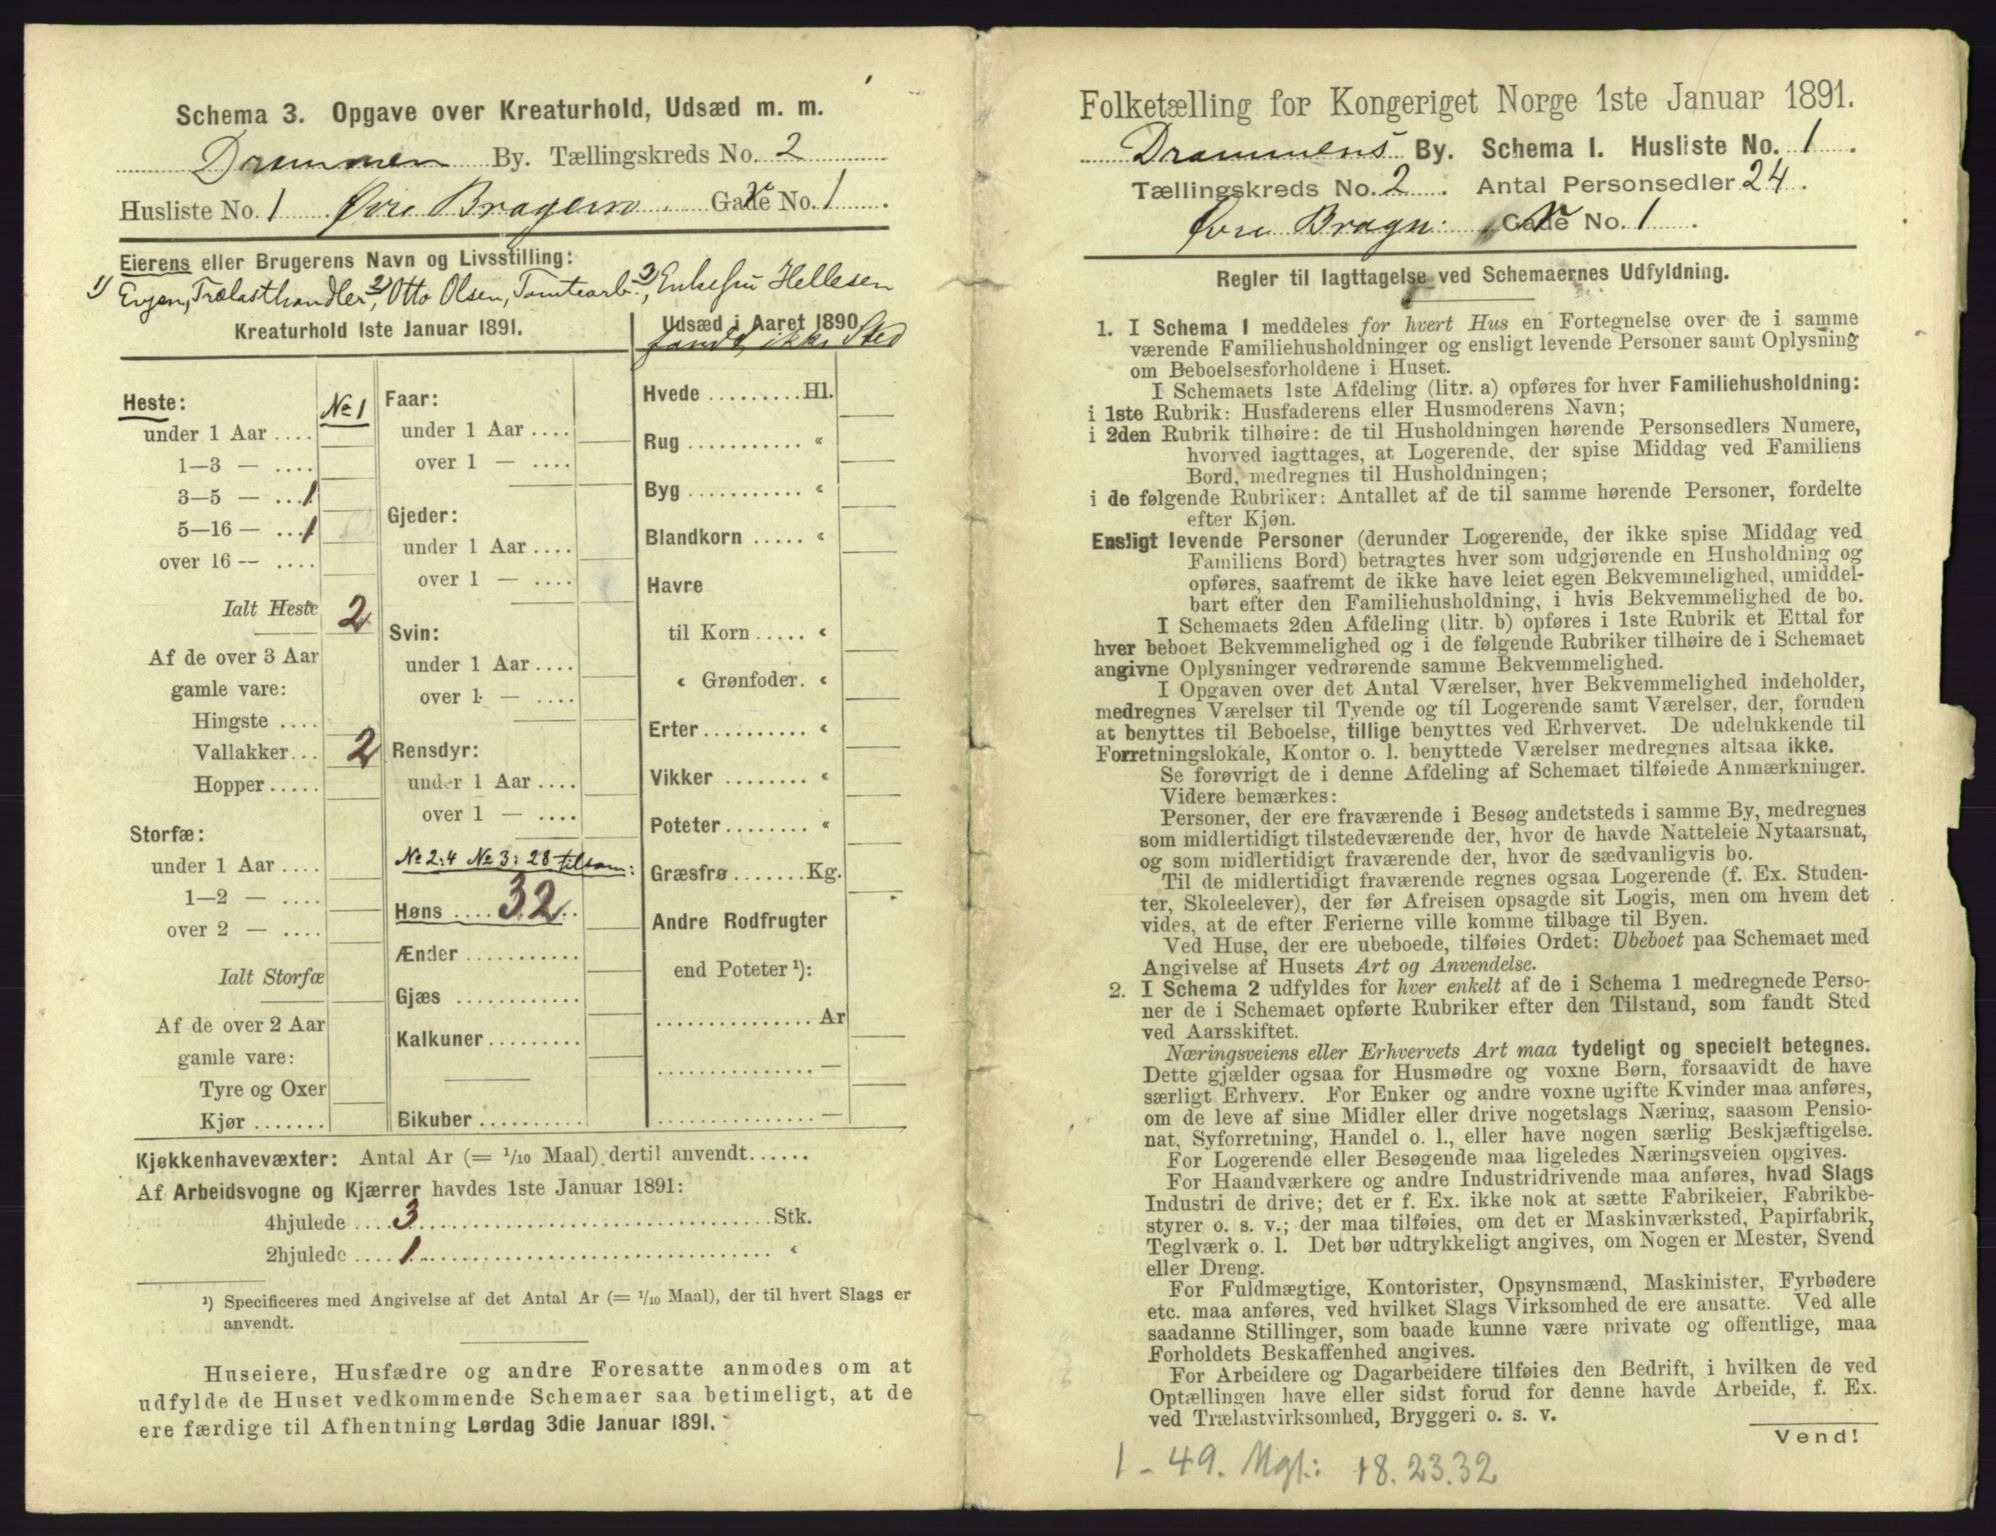 Schema 3. Opgave over Kreaturhold, Udsæd m. m.
Drammen By. Tællingskreds No. 2
Husliste No. 1 Øvre Bragern Gade No. 1
Eierens eller Brugerens Navn og Livsstilling:
1) Evjen, Trælasthandler, 2) Otto Olsen, Tomtearb., 3) Enkefru Hellesen
Kreaturhold 1ste Januar 1891.
Heste: No 1
under 1 Aar ....
1—3 — ....
3—5 — ... 1
5—16 — ... 1
over 16 — ....
Ialt Heste 2
Af de over 3 Aar
gamle vare:
Hingste ....
Vallakker... 2
Hopper.....
Storfæ:
under 1 Aar ....
1—2 — ....
over 2 — ....
Ialt Storfæ
Af de over 2 Aar
gamle vare:
Tyre og Oxer
Kjør .......
Faar:
under 1 Aar ....
over 1 — ....
Gjeder:
under 1 Aar ....
over 1 — ....
Svin:
under 1 Aar ....
over 1 — ....
Rensdyr:
under 1 Aar ....
over 1 — ....
No 2: 4 No 3: 28 tilsam:
Høns .... 32
Ænder ...........
Gjæs ............
Kalkuner.........
Bikuber ..........
Udsæd i Aaret 1890
fandt ikke Sted
Hvede ......... Hl.
Rug ........... «
Byg ........... «
Blandkorn ..... «
Havre
til Korn ..... «
« Grønfoder. «
Erter.......... «
Vikker ........ «
Poteter........ «
Græsfrø....... Kg.
Andre Rodfrugter
end Poteter ¹):
............... Ar
............... —
............... —
Kjøkkenhavevæxter: Antal Ar (= ¹/₁₀ Maal) dertil anvendt......
Af Arbeidsvogne og Kjærrer havdes 1ste Januar 1891:
4hjulede .... 3 .................... Stk.
2hjulede .... 1 .................... «
¹) Specificeres med Angivelse af det Antal Ar (= ¹/₁₀ Maal), der til hvert Slags er
anvendt.
Huseiere, Husfædre og andre Foresatte anmodes om at
udfylde de Huset vedkommende Schemaer saa betimeligt, at de
ere færdige til Afhentning Lørdag 3die Januar 1891.
Folketælling for Kongeriget Norge 1ste Januar 1891.
Drammens By. Schema 1. Husliste No. 1
Tællingskreds No. 2. Antal Personsedler 24.
Øvre Bragn: Gade No. 1.
Regler til Iagttagelse ved Schemaernes Udfyldning.
1. I Schema 1 meddeles for hvert Hus en Fortegnelse over de i samme
værende Familiehusholdninger og ensligt levende Personer samt Oplysning
om Beboelsesforholdene i Huset.
I Schemaets 1ste Afdeling (litr. a) opføres for hver Familiehusholdning:
i 1ste Rubrik: Husfaderens eller Husmoderens Navn;
i 2den Rubrik tilhøire: de til Husholdningen hørende Personsedlers Numere,
hvorved iagttages, at Logerende, der spise Middag ved Familiens
Bord, medregnes til Husholdningen;
i de følgende Rubriker: Antallet af de til samme hørende Personer, fordelte
efter Kjøn.
Ensligt levende Personer (derunder Logerende, der ikke spise Middag ved
Familiens Bord) betragtes hver som udgjørende en Husholdning og
opføres, saafremt de ikke have leiet egen Bekvemmelighed, umiddel-
bart efter den Familiehusholdning, i hvis Bekvemmelighed de bo.
I Schemaets 2den Afdeling (litr. b) opføres i 1ste Rubrik et Ettal for
hver beboet Bekvemmelighed og i de følgende Rubriker tilhøire de i Schemaet
angivne Oplysninger vedrørende samme Bekvemmelighed.
I Opgaven over det Antal Værelser, hver Bekvemmelighed indeholder,
medregnes Værelser til Tyende og til Logerende samt Værelser, der, foruden
at benyttes til Beboelse, tillige benyttes ved Erhvervet. De udelukkende til
Forretningslokale, Kontor o. l. benyttede Værelser medregnes altsaa ikke.
Se forøvrigt de i denne Afdeling af Schemaet tilføiede Anmærkninger.
Videre bemærkes:
Personer, der ere fraværende i Besøg andetsteds i samme By, medregnes
som midlertidigt tilstedeværende der, hvor de havde Natteleie Nytaarsnat,
og som midlertidigt fraværende der, hvor de sædvanligvis bo.
Til de midlertidigt fraværende regnes ogsaa Logerende (f. Ex. Studen-
ter, Skoleelever), der før Afreisen opsagde sit Logis, men om hvem det
vides, at de efter Ferierne ville komme tilbage til Byen.
Ved Huse, der ere ubeboede, tilføies Ordet: Ubeboet paa Schemaet med
Angivelse af Husets Art og Anvendelse.
2. I Schema 2 udfyldes for hver enkelt af de i Schema 1 medregnede Perso-
ner de i Schemaet opførte Rubriker efter den Tilstand, som fandt Sted
ved Aarsskiftet.
Næringsveiens eller Erhvervets Art maa tydeligt og specielt betegnes.
Dette gjælder ogsaa for Husmødre og voxne Børn, forsaavidt de have
særligt Erhverv. For Enker og andre voxne ugifte Kvinder maa anføres,
om de leve af sine Midler eller drive nogetslags Næring, saasom Pensio-
nat, Syforretning, Handel o. l., eller have nogen særlig Beskjæftigelse.
For Logerende eller Besøgende maa ligeledes Næringsveien opgives.
For Haandværkere og andre Industridrivende maa anføres, hvad Slags
Industri de drive; det er f. Ex. ikke nok at sætte Fabrikeier, Fabrikbe-
styrer o. s. v.; der maa tilføies, om det er Maskinværksted, Papirfabrik,
Teglværk o. l. Det bør udtrykkeligt angives, om Nogen er Mester, Svend
eller Dreng.
For Fuldmægtige, Kontorister, Opsynsmænd, Maskinister, Fyrbødere
etc. maa anføres, ved hvilket Slags Virksomhed de ere ansatte. Ved alle
saadanne Stillinger, som baade kunne være private og offentlige, maa
Forholdets Beskaffenhed angives.
For Arbeidere og Dagarbeidere tilføies den Bedrift, i hvilken de ved
Optællingen have eller sidst forud for denne havde Arbeide, f. Ex.
ved Trælastvirksomhed, Bryggeri o. s. v.
Vend!
1 - 49. Mgl.: 18. 23. 32